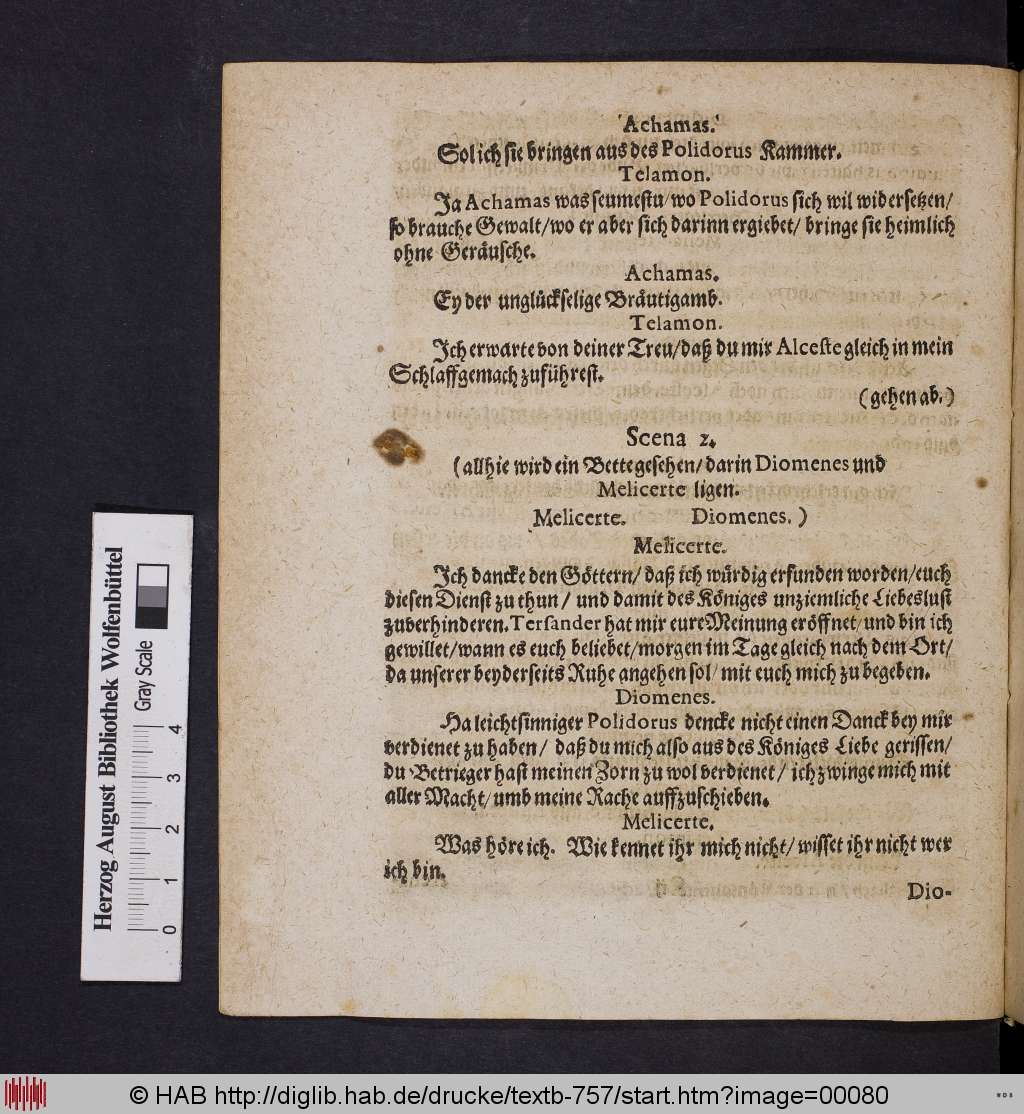 Achamas.
Sol ich sie bringen aus des Polidorus Kammer.
Telamon.
Ja Achamas was seumestu/wo Polidorus sich wil widersetzen/
so brauche Gewalt/wo er aber sich darinn ergiebet/ bringe sie heimlich
ohne Geräusche.
Achamas.
Ey der unglückselige Bräutigamb.
Telamon.
Ich erwarte von deiner Treu/daß du mir Alceste gleich in mein
Schlaffgemach zuführest.
(gehen ab.)
Scena 2.
(allhie wird ein Bette gesehen/darin Diomenes und
Melicerte ligen.
Melicerte. Diomenes.)
Melicerte.
Ich dancke den Göttern/ daß ich würdig erfunden worden/euch
diesen Dienst zu thun / und damit des Königes unziemliche Liebeslust
zuverhinderen. Tersander hat mir eure Meinung eröffnet/und bin ich
gewillet/wann es euch beliebet/morgen im Tage gleich nach dem Ort/
da unserer beyderseits Ruhe angehen sol/ mit euch mich zu begeben.
Diomenes.
Ha leichtsinniger Polidorus dencke nicht einen Danck bey mir
verdienet zu haben/ daß du mich also aus des Königes Liebe gerissen/
du Betrieger hast meinen Zorn zu wol verdienet/ ich zwinge mich mit
aller Macht/umb meine Rache auffzuschieben.
Melicerte.
Was höre ich. Wie kennet ihr mich nicht/ wisset ihr nicht wer
ich bin.
Dio-
Herzog August Bibliothek Wolfenbüttel
Gray Scale
0 1 2 3 4
© HAB http://diglib.hab.de/drucke/textb-757/start.htm?image=00080